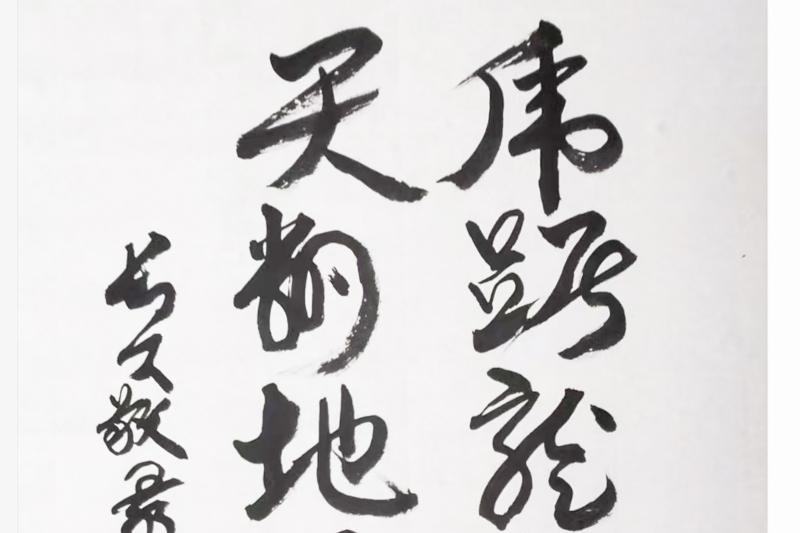 虎踞龍
天翻地
长文敬录